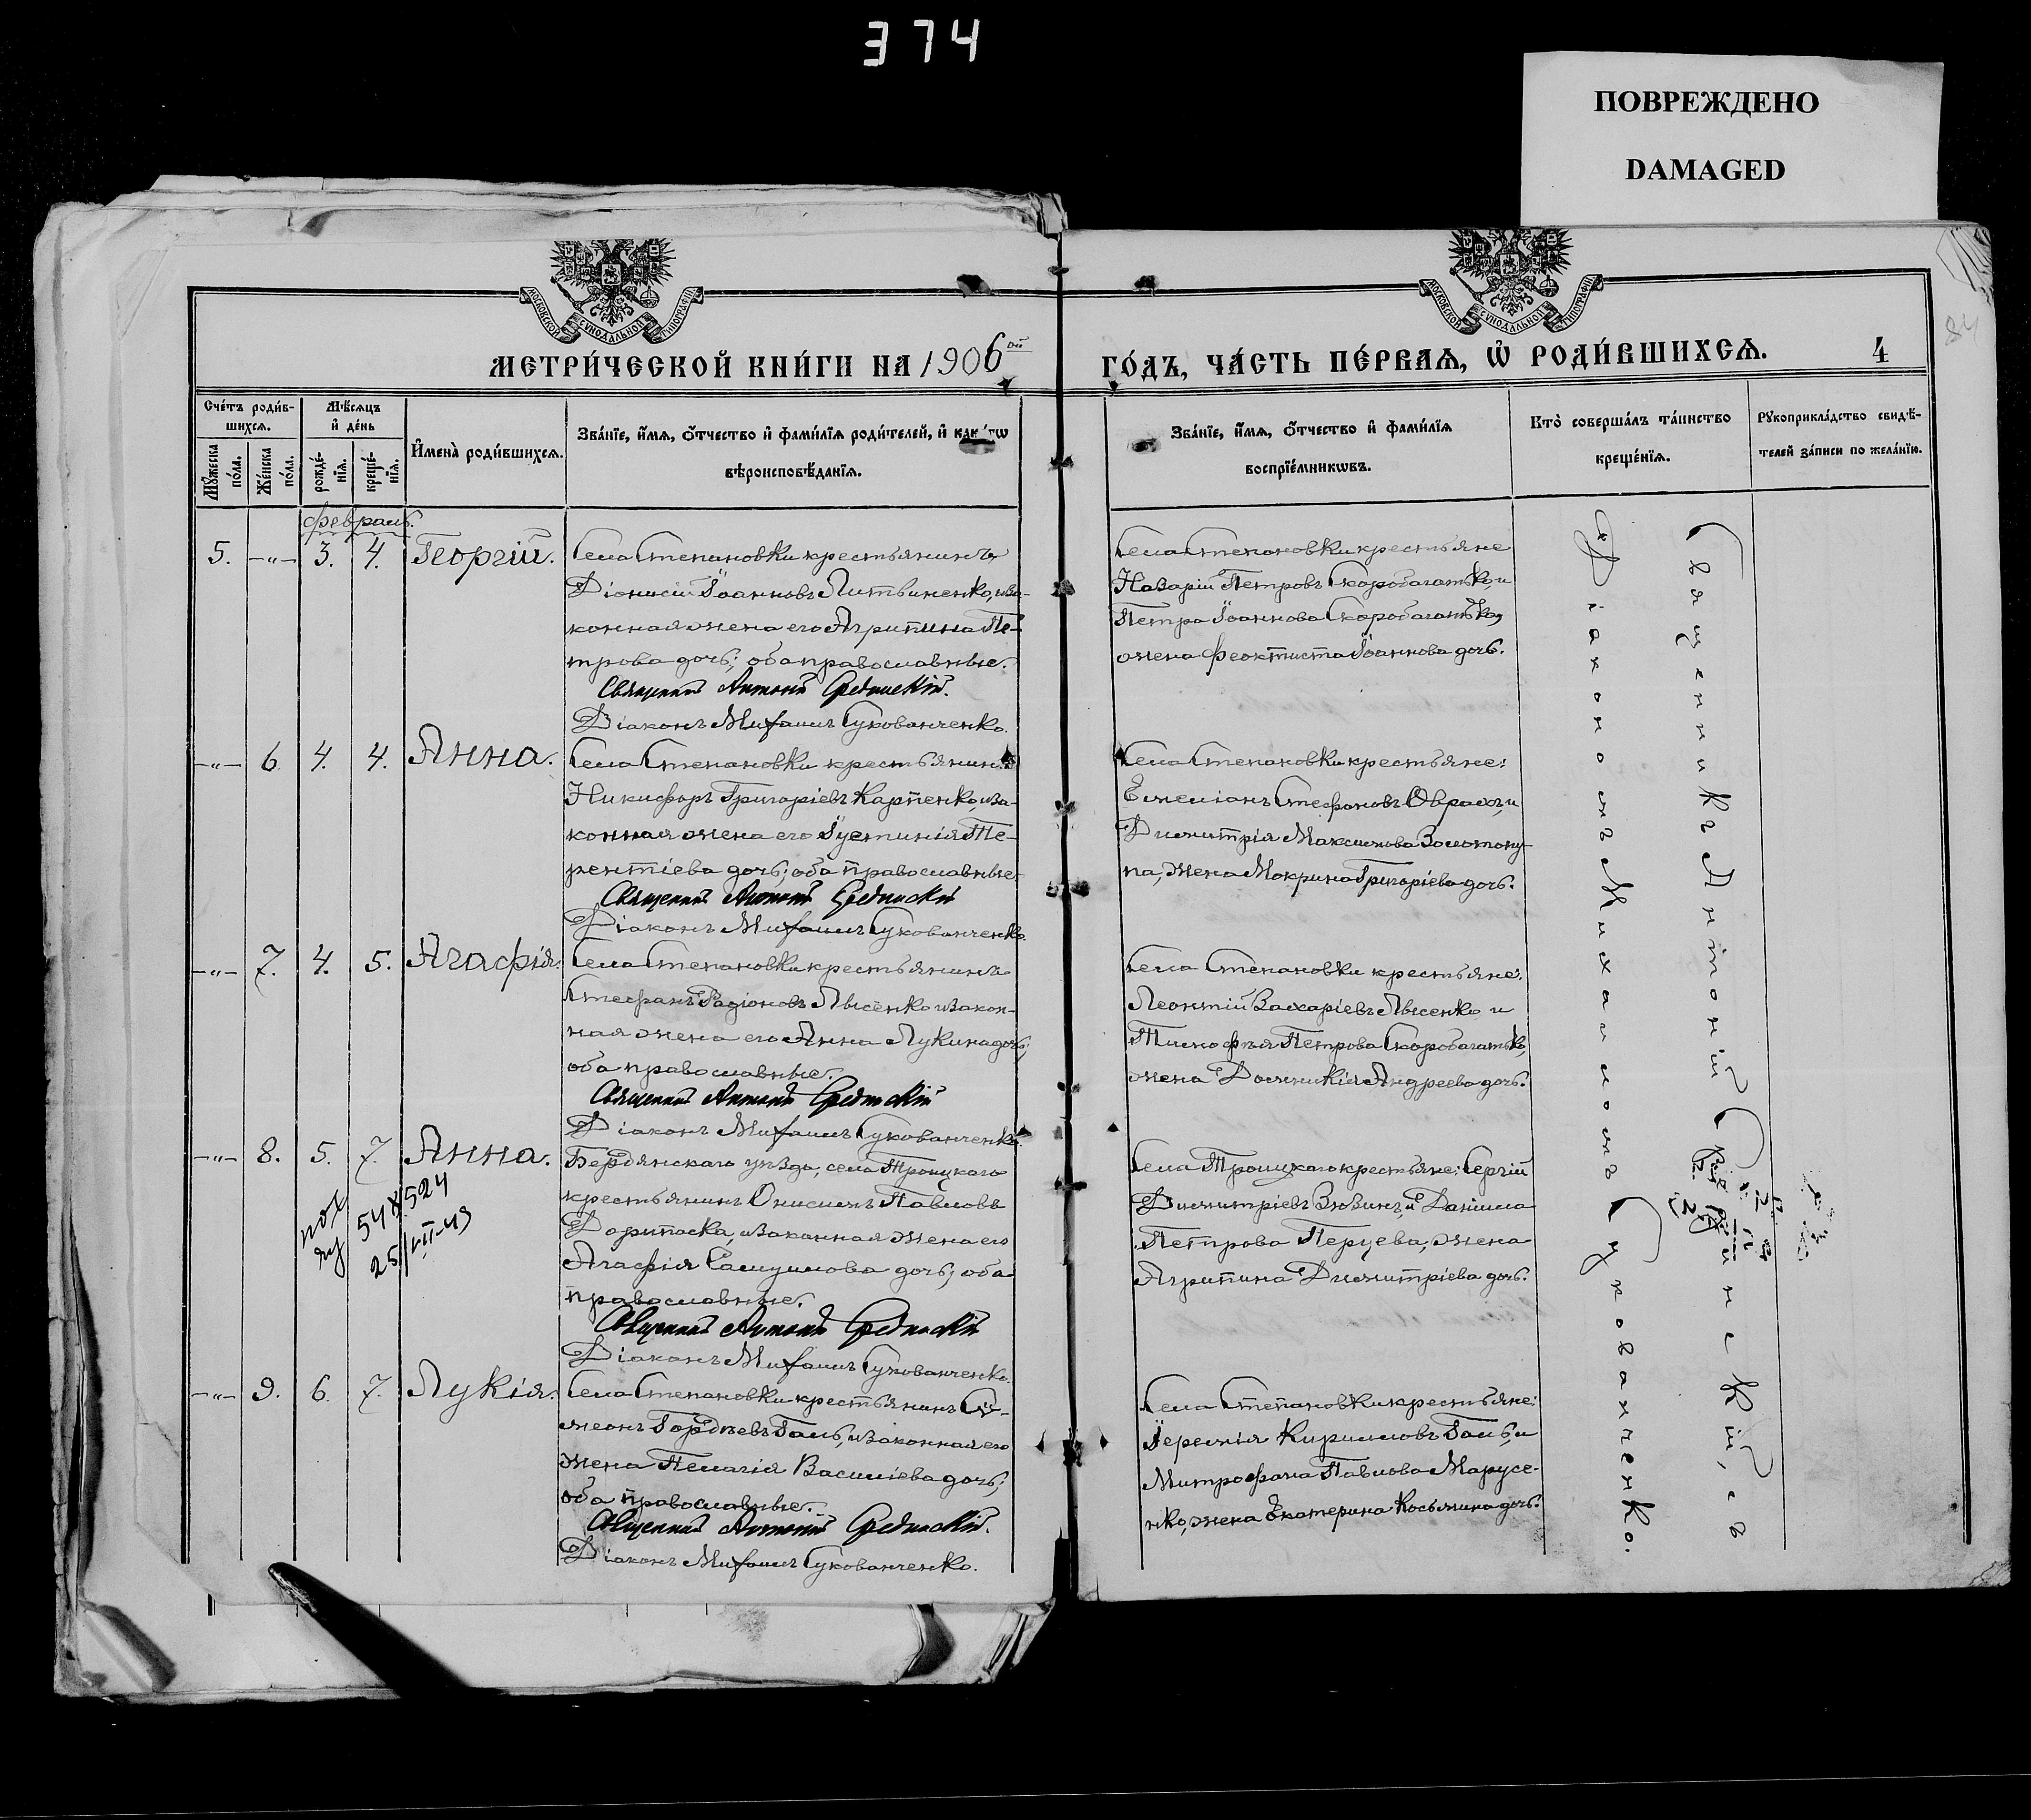 374
ПОВРЕЖДЕНО
DAMAGED
МОСКОВСКОЙ СУНОДАЛЬНОЙ ТИПОГРАФІИ
МОСКОВСКОЙ СУНОДАЛЬНОЙ ТИПОГРАФІИ
МЕТРИ́ЧЕСКОЙ КНИ́ГИ НА 1906ой
ГО́ДЪ, ЧА́СТЬ ПЕ́РВАѦ, Ѡ҆ РОДИ́ВШИХСѦ. 4
84
Сче́тъ роди́в-
шихсѧ.
Мѣ́сѧцъ
и҆ де́нь
Мꙋ́жеска
по́ла.
Же́нска
по́ла.
рожде́-
нїѧ.
креще́-
нїѧ.
И҆мена̀ роди́вшихсѧ.
Зва́нїе, и҆́мѧ, ѻ҆́тчество и҆ фами́лїѧ роди́телей, и҆
вѣроисповѣ́данїѧ.
Зва́нїе, и҆́мѧ, ѻ҆́тчество и҆ фами́лїѧ
воспрїе́мникѡвъ.
Кто̀ соверша́лъ та́инство
креще́нїѧ.
Рꙋкоприкла́дство свидѣ́-
телей за́писи по жела́нїю.
февраль.
5. -„- 3. 4. Георгій.
Села Степановки крестьянинъ
Діонисій Іоанновъ Литвиненко, и за-
конная жена его Агрипина Пе-
трова дочь; оба православные.
Священникъ Антоній Срединскій.
Діаконъ Михаилъ Сукованченко.
Села Степановки крестьяне
Назарій Петровъ Скоробагатько, и
Петра Іоаннова Скоробагатько,
жена Феоктиста Іоаннова дочь.
-„- 6 4. 4. Анна.
Села Степановки крестьянинъ
Никифоръ Григоріевъ Карпенко, и за-
конная жена его Іустинія Те-
рентіева дочь; оба православные.
Священникъ Антоній Срединскій
Діаконъ Михаилъ Сукованченко.
Села Степановки крестьяне:
Емеліанъ Стефановъ Оврахъ, и
Димитрія Максимова Золотопу-
па, жена Мокрина Григоріева дочь.
-„- 7. 4. 5. Агафія.
Села Степановки крестьянинъ
Стефанъ Родіоновъ Лысенко и закон-
ная жена его Анна Лукина дочь;
оба православные.
Священникъ Антоній Срединскій
Діаконъ Михаилъ Сукованченко.
Села Степановки крестьяне:
Леонтій Захаріевъ Лысенко и
Тимофея Петрова Скоробагатько,
жена Домникія Андреева дочь.
-„- 8. 5. 7. Анна.
54 524
25/VII-49
Бердянскаго уѣзда, села Троицкаго
крестьянинъ Онисимъ Павловъ
Дорипаска, и законная жена его
Агафія Самуилова дочь; оба
православные.
Священникъ Антоній Срединскій
Діаконъ Михаилъ Сукованченко.
Села Троицкаго крестьяне: Сергій
Димитріевъ Зюзинъ, и Даніила
Петрова Перцева, жена
Агрипина Димитріева дочь.
-„- 9. 6. 7. Лукія.
Села Степановки крестьянинъ Сѵ-
меонъ Гордѣевъ Галь, и законная его
жена Пелагія Василіева дочь;
оба православные.
Священникъ Антоній Срединскій.
Діаконъ Михаилъ Сукованченко.
Села Степановки крестьяне:
Іеремія Кирилловъ Галь, и
Митрофана Павлова Марусе-
нко, жена Екатерина Косьмина дочь.
Священникъ Антоній Срединскій, съ
Діакономъ Михаиломъ Сукованченко.